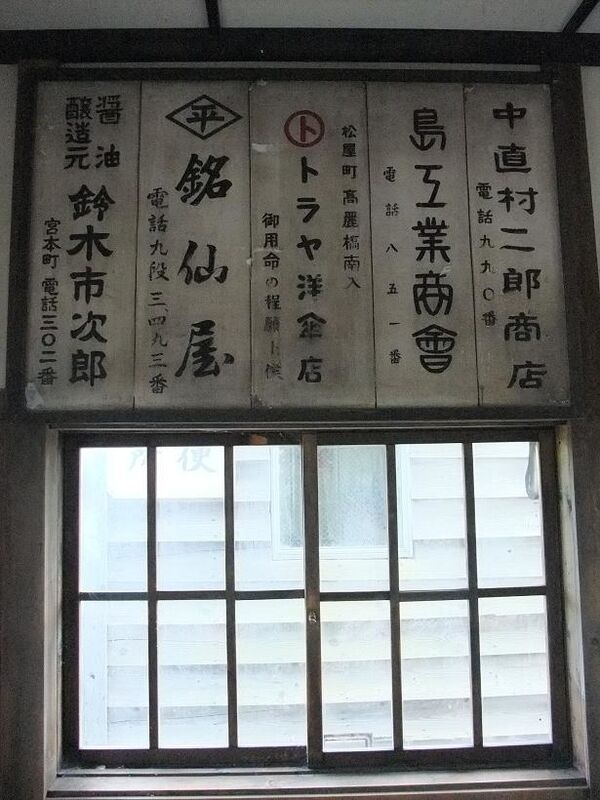 中直村二郎商店
電話九九〇番
島工業商會
電話八五一番
松屋町高麗橋南入
ト
トラヤ洋傘店
御用命の程願上候
平
銘仙屋
電話九段三、四九三番
醤油
醸造元
鈴木市次郎
宮本町電話三〇二番
便所